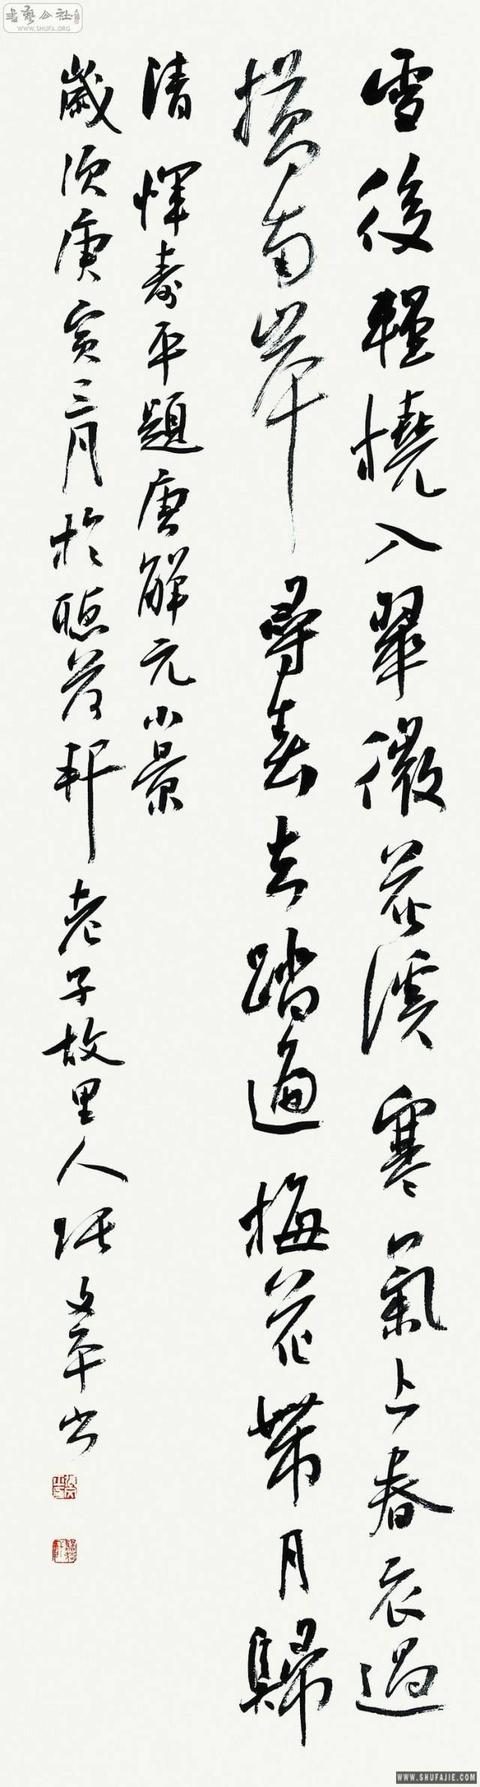 書藝公社
WWW.SHUFA.ORG
雪後輕橈入翠微花溪寒氣上春衣過
橋南岸尋春去踏遍梅花帶月歸
清惲壽平題唐解元小景
歲次庚寅三月於聽軒老子故里人張文書
WWW.SHUFAJIE.COM